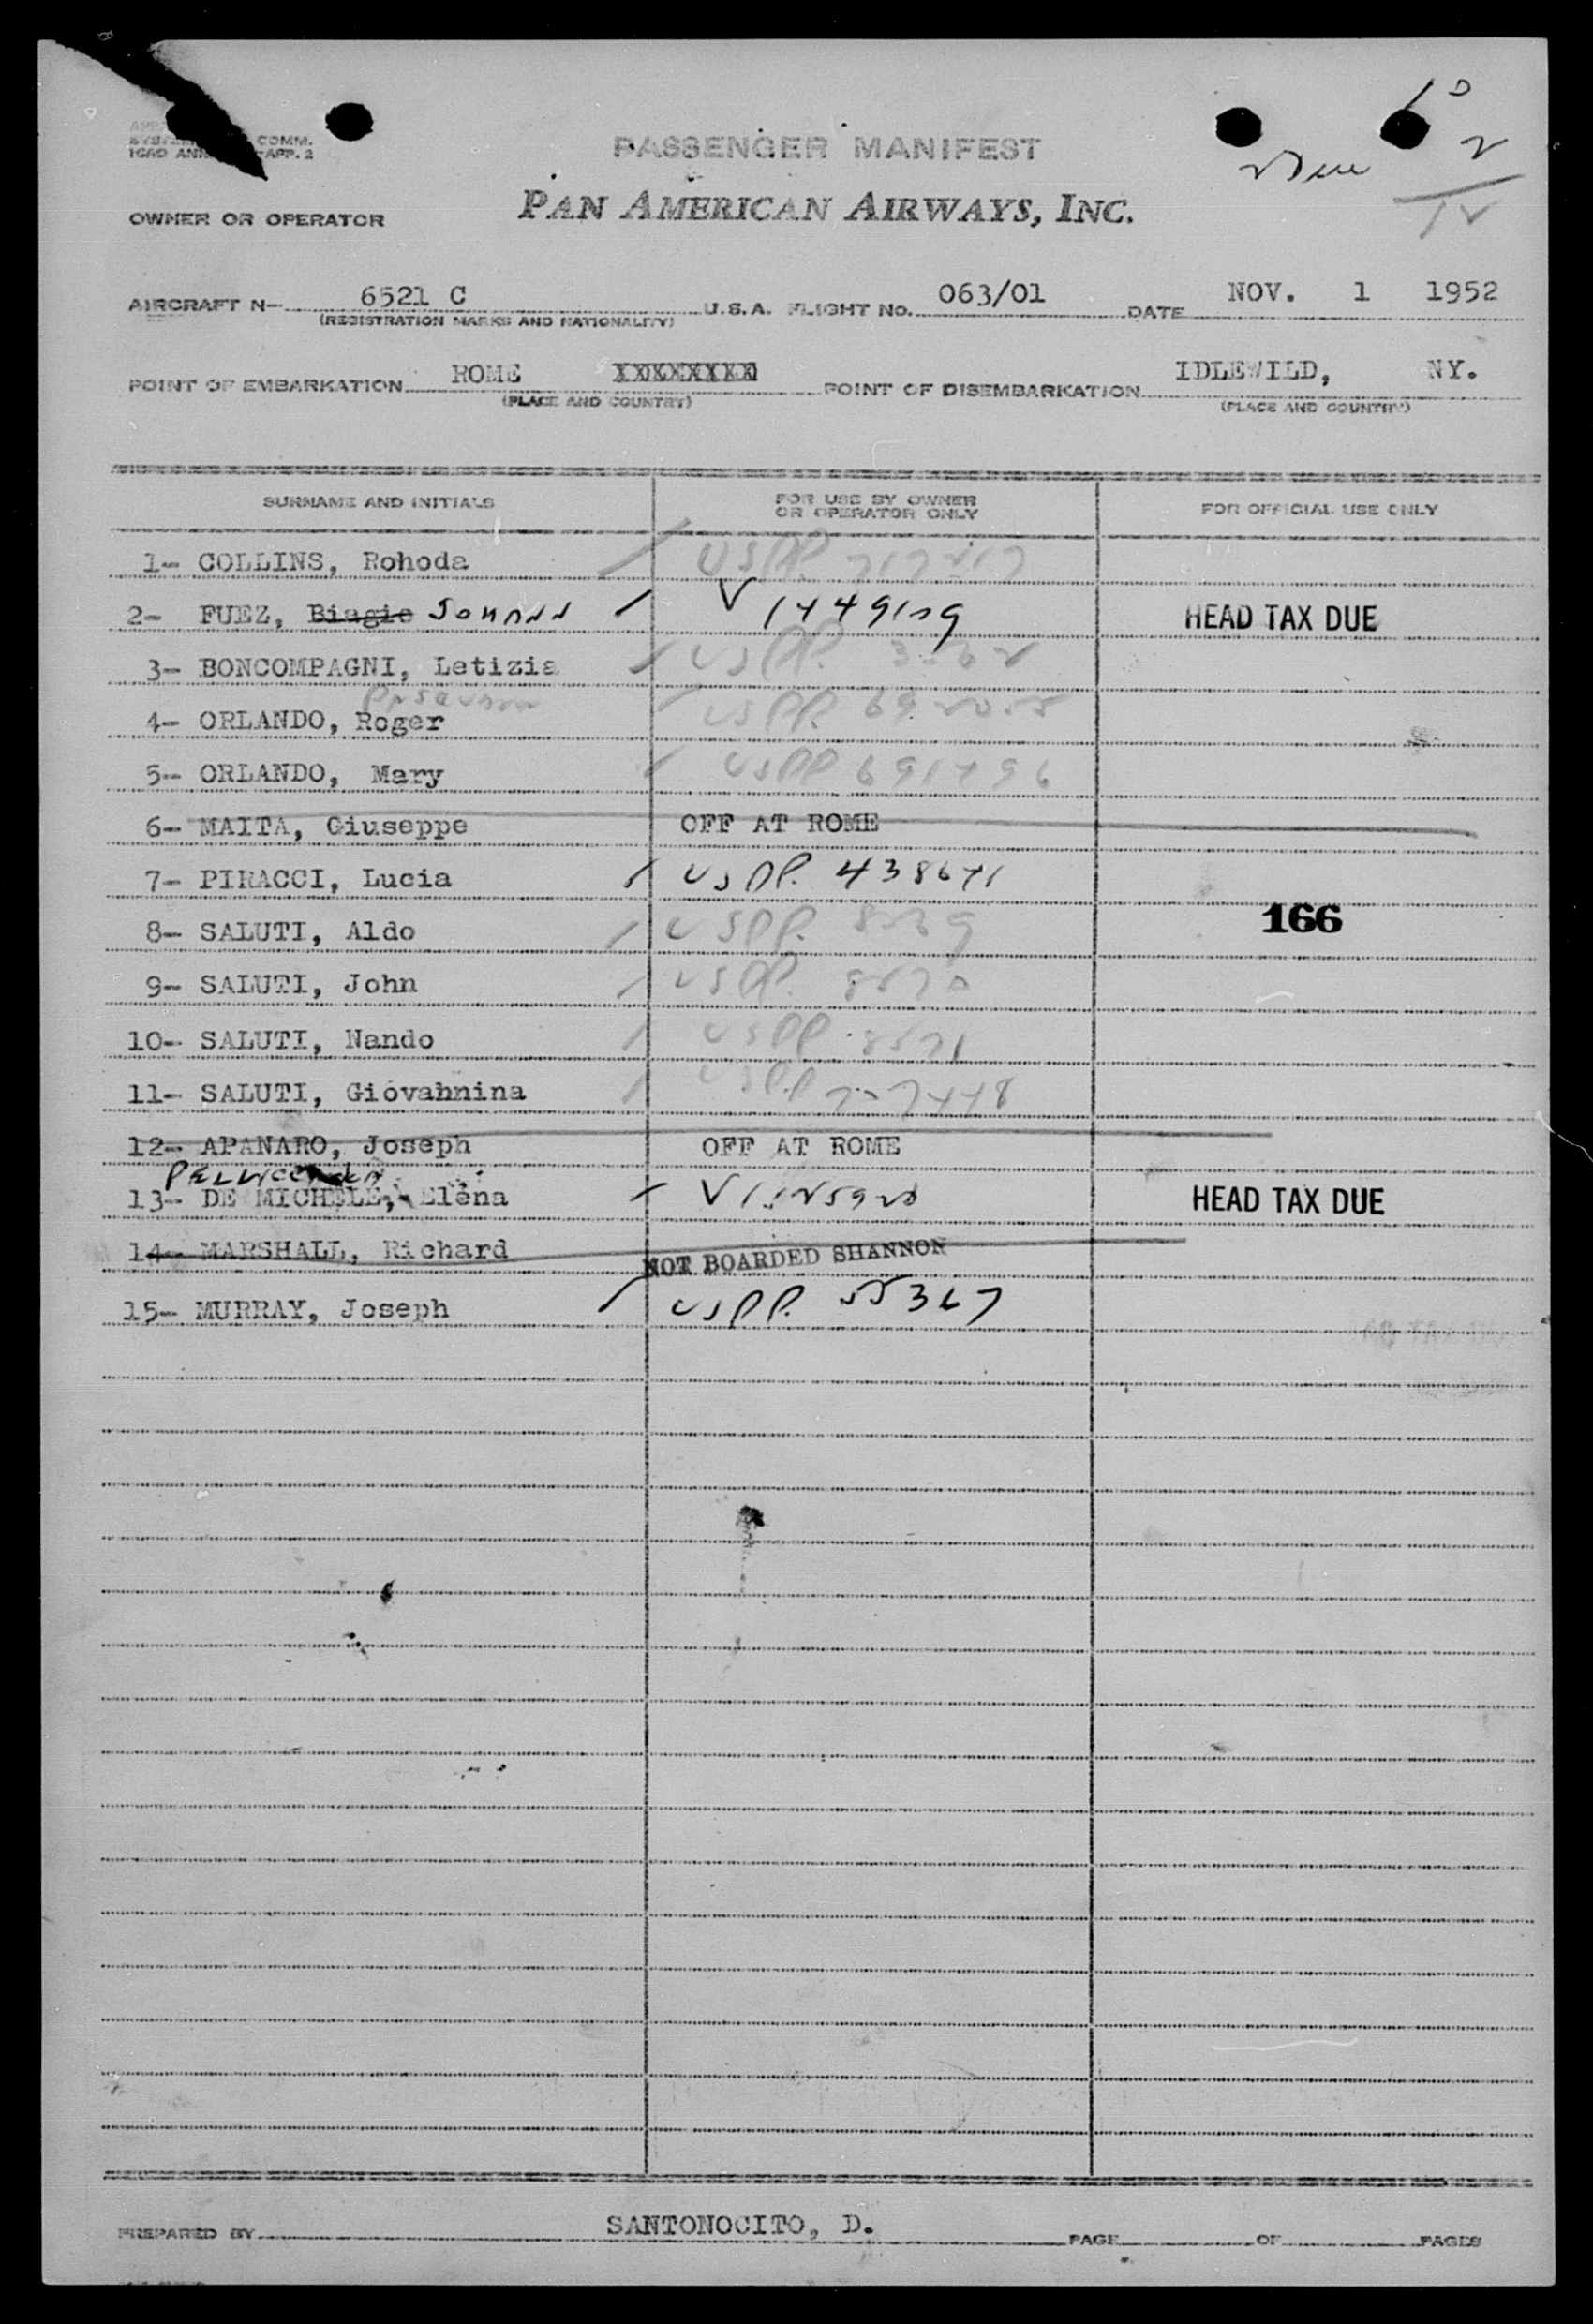 COMM.
APP. 2
PASSENGER MANIFEST
PAN AMERICAN AIRWAYS, INC.
OWNER OR OPERATOR
AIRCRAFT N- 6521 C U.S.A. FLIGHT NO. 063/01 DATE NOV. 1 1952
(REGISTRATION MARKS AND NATIONALITY)
POINT OF EMBARKATION ROME XXXXXXXX POINT OF DISEMBARKATION IDLEWILD, NY.
(PLACE AND COUNTRY) (PLACE AND COUNTRY)
SURNAME AND INITIALS FOR USE BY OWNER OR OPERATOR ONLY FOR OFFICIAL USE ONLY
1- COLLINS, Rohoda USPP.
2- FUEZ, Biagio HEAD TAX DUE
3- BONCOMPAGNI, Letizia USPP.
4- ORLANDO, Roger USPP.
5- ORLANDO, Mary USPP
6- MAITA, Giuseppe OFF AT ROME
7- PIRACCI, Lucia USPP.
8- SALUTI, Aldo USPP. 166
9- SALUTI, John USPP.
10- SALUTI, Nando USPP
11- SALUTI, Giovahnina USPP
12- APANARO, Joseph OFF AT ROME
13- DE MICHELE, Elena HEAD TAX DUE
14- MARSHALL, Richard NOT BOARDED SHANNON
15- MURRAY, Joseph USPP. 55367
PREPARED BY SANTONOCITO, D. PAGE OF PAGES